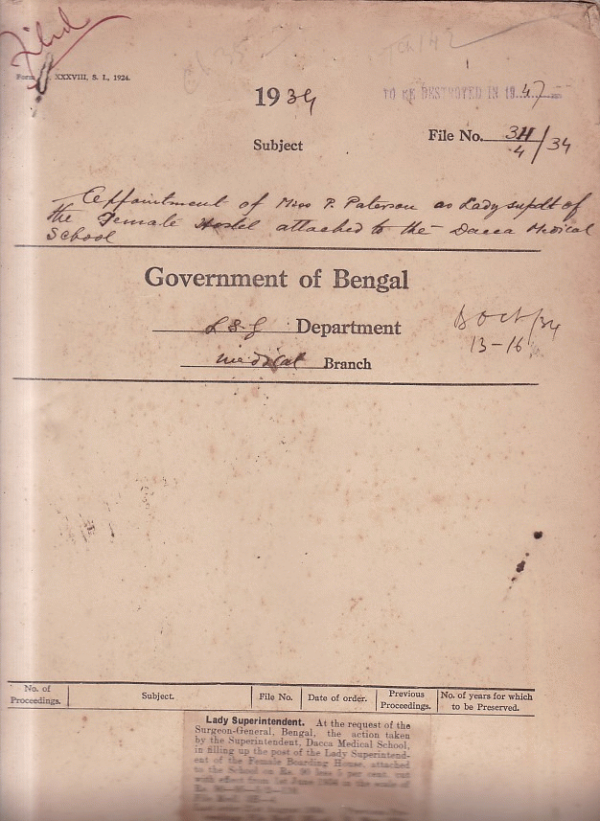 Filed
XXXVIII, S. I., 1924.
TO BE DESTROYED IN 19 47
1934
Subject
File No. 3H/4/34
Appointment of Miss P. Paterson as Lady supdt of
the Female Hostel attached to the Dacca Medical
School
Government of Bengal
L S-G Department
Medical Branch
B Oct/34
13-16
No. of Proceedings.
Subject.
File No.
Date of order.
Previous Proceedings.
No. of years for which to be Preserved.
Lady Superintendent. At the request of the
Surgeon-General, Bengal, the action taken
by the Superintendent, Dacca Medical School,
in filling up the post of the Lady Superintend-
ent of the Female Boarding House, attached
to the School on Rs. 90 less 5 per cent. cut
with effect from 1st June 1934 in the scale of